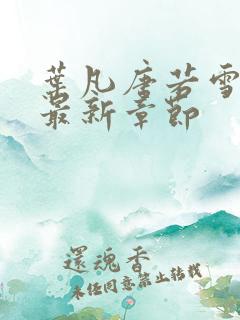 葉凡唐若雪
最新章節
還魂香
未經同意禁止轉載